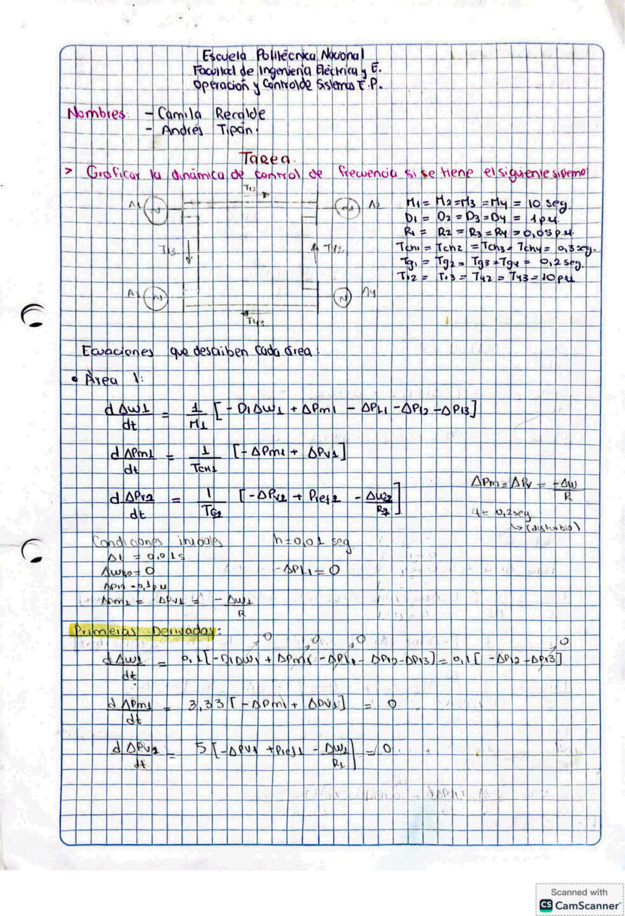 Escuela Politécnica Nacional
Facultad de Ingeniería Eléctrica y E.
Operación y Control de Sistemas E.P.
Nombres: - Camila Recalde
- Andrés Tipán.
Tarea.
> Graficar la dinámica de control de frecuencia si se tiene el siguiente sistema:
T12
A1 N
N A2
M1 = M2 = M3 = M4 = 10 seg
D1 = D2 = D3 = D4 = 1 pu
R1 = R2 = R3 = R4 = 0,05 pu.
Tch1 = Tch2 = Tch3 = Tch4 = 0,3 seg.
Tg1 = Tg2 = Tg3 = Tg4 = 0,2 seg.
T12 = T13 = T42 = T43 = 10 pu
T13
T42
A3 N
N A4
T43
Ecuaciones que describen cada área:
• Área 1:
dΔω1/dt = 1/M1 [-D1Δω1 + ΔPm1 - ΔPL1 - ΔP12 - ΔP13]
dΔPm1/dt = 1/Tch1 [-ΔPm1 + ΔPv1]
dΔPv2/dt = 1/TG2 [-ΔPv2 + Pref2 - Δω2/R2]
ΔPm = ΔPv = -Δω/R
t = 0,2 seg
↳ (disturbio)
Condiciones iniciales h = 0,01 seg
Δt = 0,01 s
Δω10 = 0 -ΔPL1 = 0
ΔPm1 = ΔPv1 = -Δω1/R
Primeras Derivadas:
dΔω1/dt = 0,1[-D1Δω1 + ΔPm1 - ΔPL1 - ΔP12 - ΔP13] = 0,1 [-ΔP12 - ΔP13]
0 0 0 0
dΔPm1/dt = 3,33 [-ΔPm1 + ΔPv1] = 0
dΔPv2/dt = 5 [-ΔPv1 + Pref1 - Δω1/R1] = 0
Scanned with
CS CamScanner